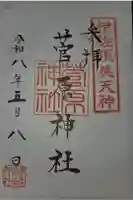 奉拝
天神
菅原神社
菅原神社
令和八年五月八日